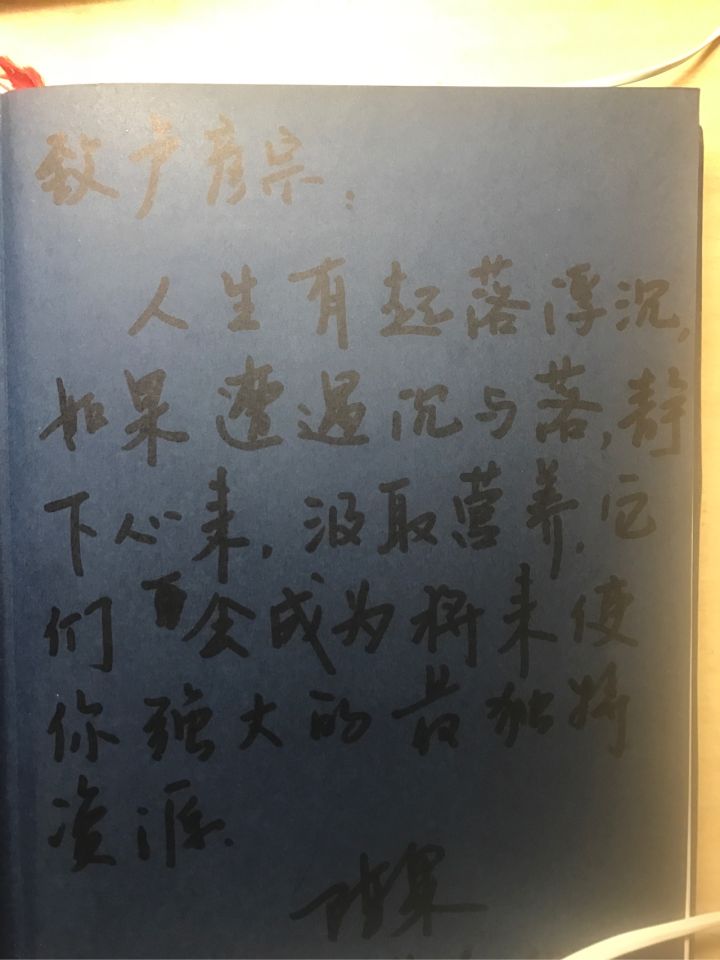 致卢彦宗：
人生有起落浮沉,
如果遭遇沉与落,静
下心来,汲取营养,它
们会成为将来使
你强大的最独特
资源.